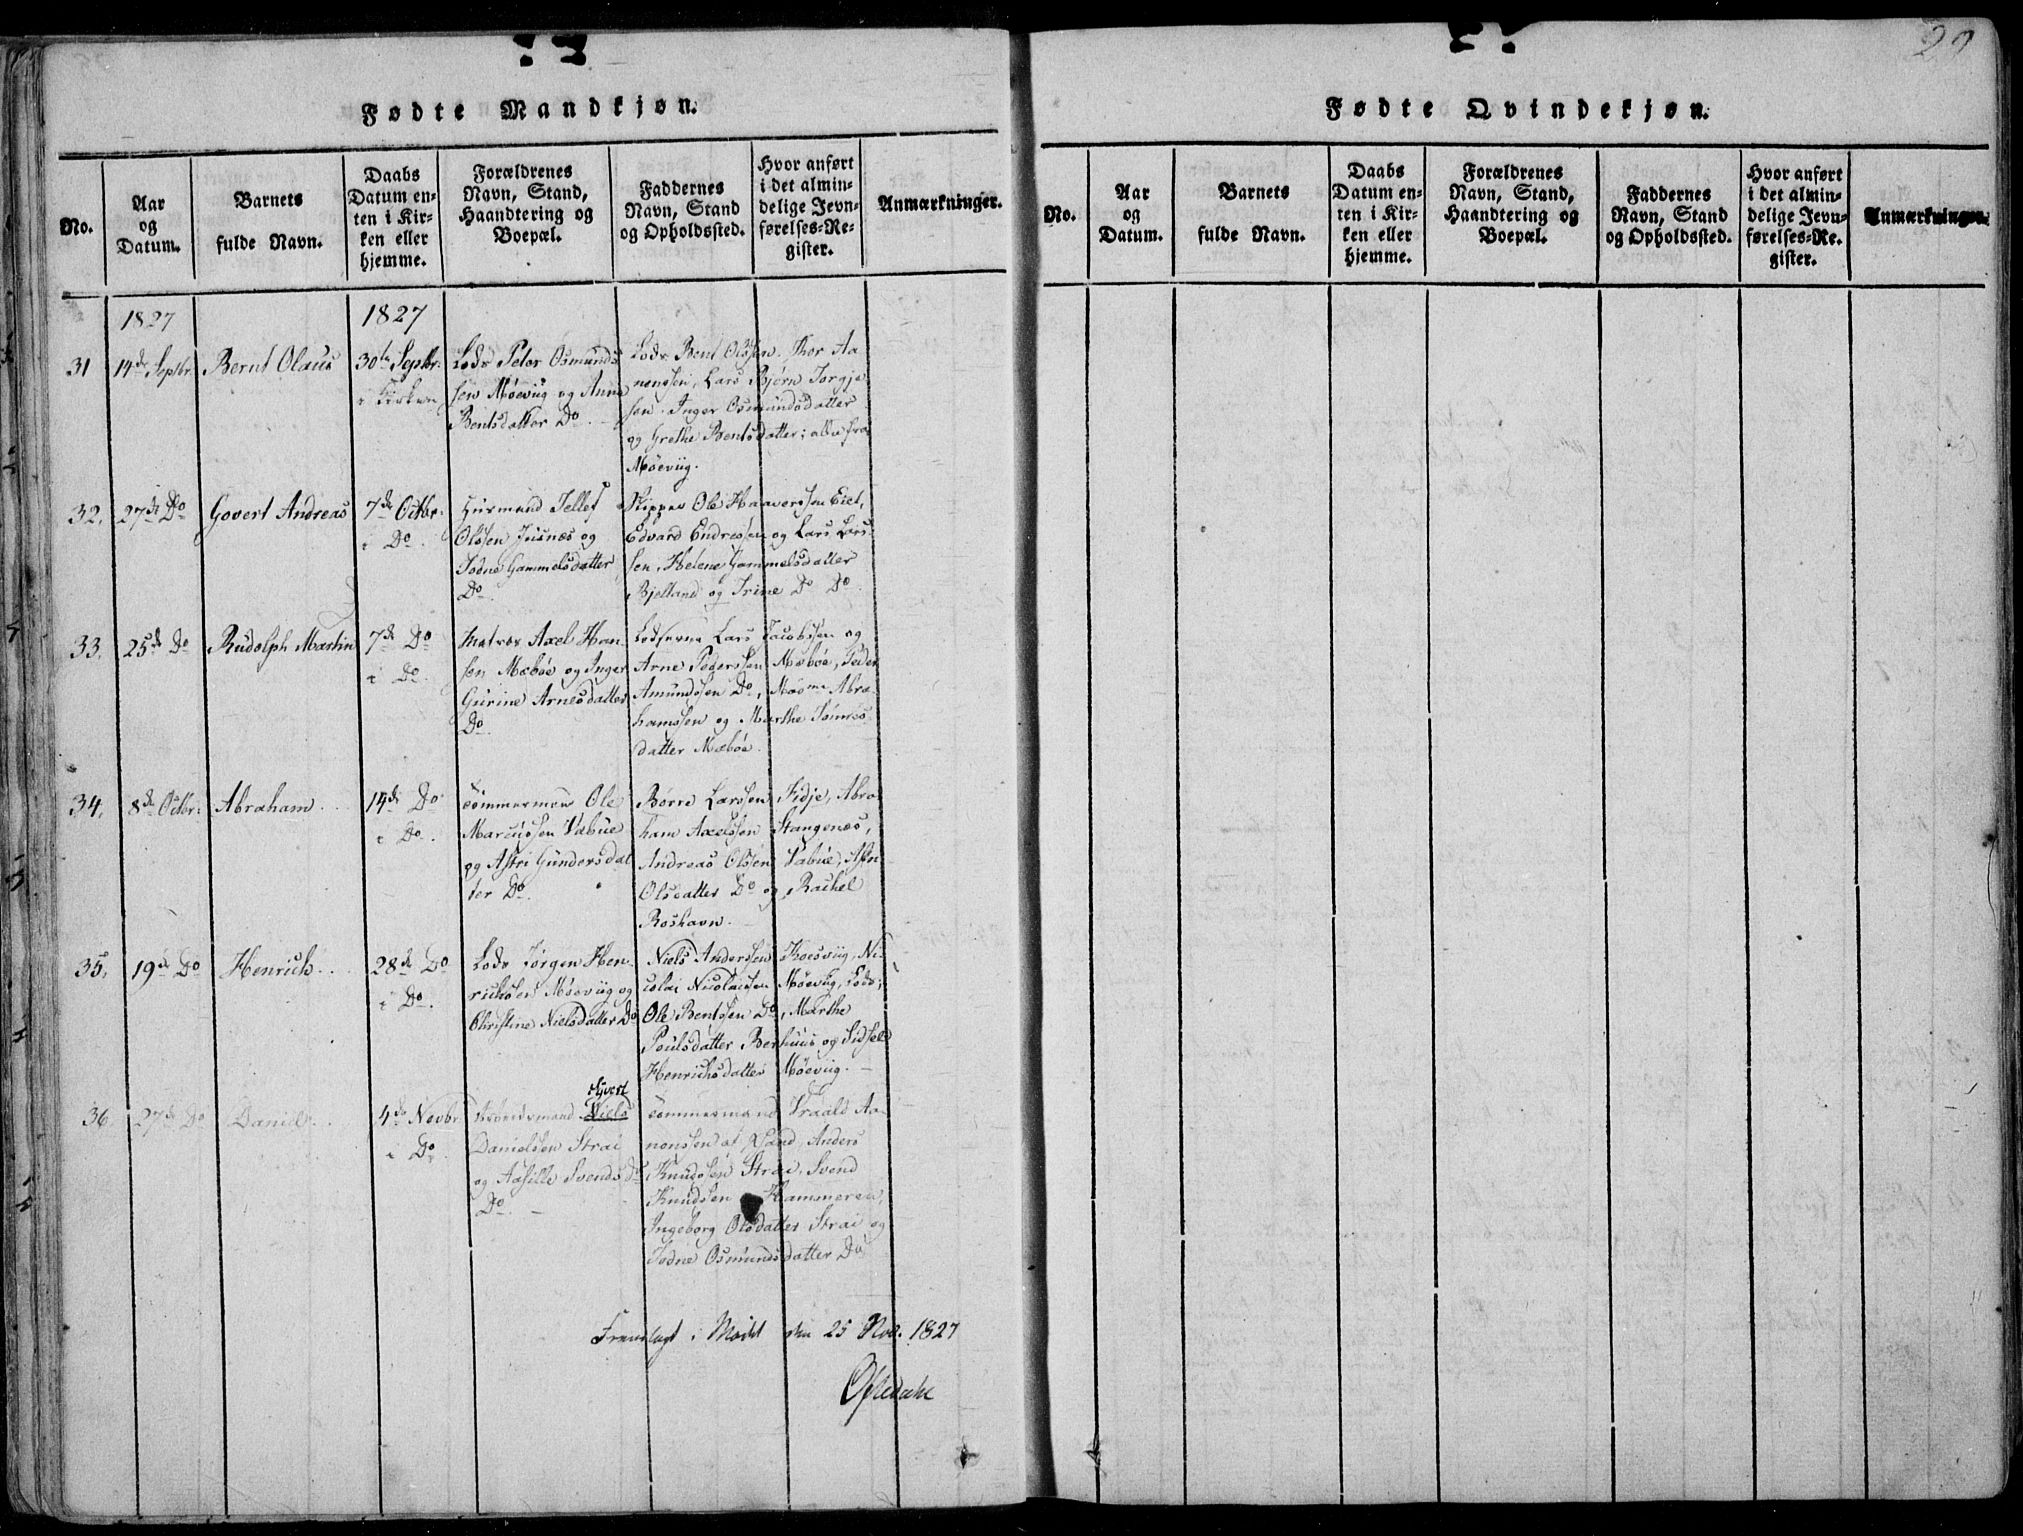 29
Fødte Mandkjøn.
No.
Aar
og
Datum.
Barnets
fulde Navn.
Daabs
Datum en-
ten i Kir-
ken eller
hjemme.
Forældrenes
Navn, Stand,
Haandtering og
Boepæl.
Faddernes
Navn, Stand
og Opholdssted.
Hvor anført
i det almin-
delige Jevn-
førelses-Re-
gister.
Anmærkninger.
1827
1827
31
14de Septbr.
Bernt Olaus
30te Septbr.
i Kirken
Lods Peter Osmunds
sen Møeviig og Anne
Bentsdatter Do.
Lods Bent Olssen. Thor Aa
nonssen, Lars Bjørn Torgje
sen. Inger Osmundsdatter
og Grethe Bentsdatter; alle fra
Møeviig.
32.
27de Do
Govert Andreas
7de Octbr.
i Do.
Huusmand Tellef
Olssen Juisnæs og
Todne Gammelsdatter
Do.
Skipper Ole Haaverssen Eiet,
Edvard Endressen og Lars Lars-
sen, Helene Gammelsdatter
Bjelland og Trine Do Do.
33.
25de Do
Rudolph Martin
7de Do
i Do.
Matros Axel Han-
sen Mæbøe og Inger
Gurine Arnesdatter
Do.
Lodserne Lars Jacobssen og
Arne Pederssen Mæbøe, Peder
Amundssen Do, Abra
hamssen og Marthe Tønnes
datter Mæbøe.
34.
8de Octbr.
Abraham
14de Do
i Do.
Tømmermm Ole
Marcussen Vabue
og Astri Gundersdat
ter Do.
Børre Larssen Fidje, Abra
ham Axelssen Stangenæs,
Andreas Olssen Vabue, Asten
Olsdatter Do og Rachel
Roshavn.
35.
19de Do
Henrich
28de Do
i Do.
Lods Jørgen Hen-
richsen Møeviig og
Christine Nielsdatter Do
Niels Anderssen Koesviig, Ni-
colai Nicolaissen Møeviig, Lods;
Ole Bentssen Do, Marthe
Poulsdatter Berhuus og Sidsel
Henrichsdatter Møeviig.
36.
27de Do
Daniel
4de Novbr.
i Do.
Syvert
Arbeidsmand Niels
Danielssen Strai
og Aasille Svends D
Do.
Tømmermand Vraald Aa-
nonssen af Xsand, Anders
Knudssen Strai, Svend
Knudssen Hammeren,
Ingeborg Olsdatter Strai og
Todne Osmundsdatter Do
Fremlagt i Mødet den 25 Nov. 1827
Oftedahl
Fødte Qvindekjøn.
No.
Aar
og
Datum.
Barnets
fulde Navn.
Daabs
Datum en-
ten i Kir-
ken eller
hjemme.
Forældrenes
Navn, Stand,
Haandtering og
Boepæl.
Faddernes
Navn, Stand
og Opholdssted.
Hvor anført
i det almin-
delige Jevn-
førelses-Re-
gister.
Anmærkninger.